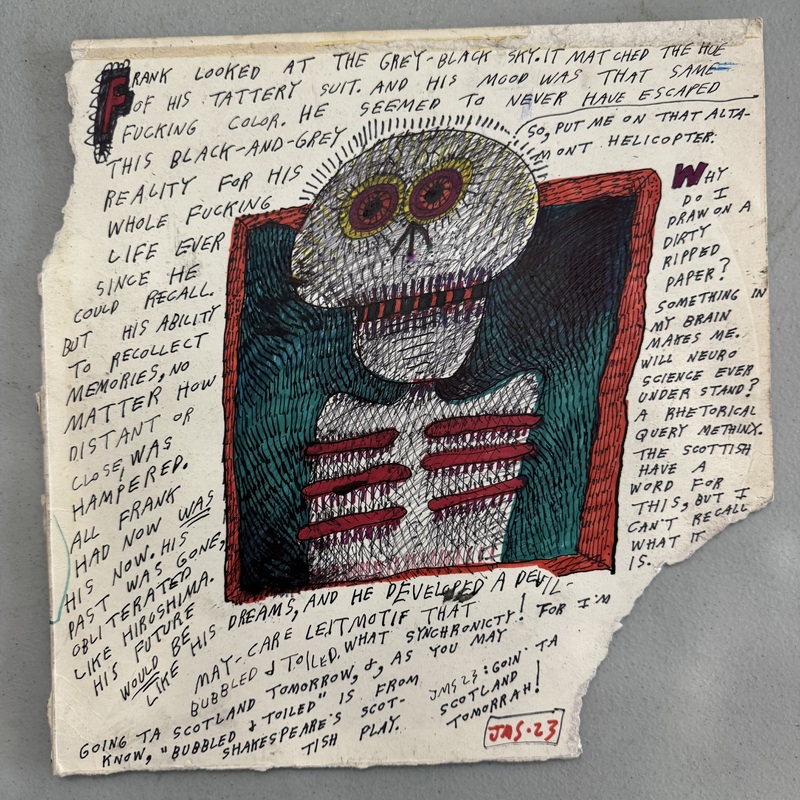 FRANK LOOKED AT THE GREY-BLACK SKY. IT MATCHED THE HUE
OF HIS TATTERY SUIT. AND HIS MOOD WAS THAT SAME
FUCKING COLOR. HE SEEMED TO NEVER HAVE ESCAPED
THIS BLACK-AND-GREY
REALITY FOR HIS
WHOLE FUCKING
LIFE EVER
SINCE HE
COULD RECALL.
BUT HIS ABILITY
TO RECOLLECT
MEMORIES, NO
MATTER HOW
DISTANT OR
CLOSE, WAS
HAMPERED.
ALL FRANK
HAD NOW WAS
HIS NOW. HIS
PAST WAS GONE,
OBLITERATED
LIKE HIROSHIMA.
HIS FUTURE
WOULD BE
LIKE HIS DREAMS, AND HE DEVELOPED A DEVIL-
MAY-CARE LEITMOTIF THAT
BUBBLED & TOILED. WHAT SYNCHRONICTY! FOR I'M
GOING TA SCOTLAND TOMORROW, &, AS YOU MAY
KNOW, "BUBBLED & TOILED" IS FROM
SHAKESPEARE'S SCOT-
TISH PLAY.
JMS 23: GOIN' TA
SCOTLAND
TOMORRAH!
JMS·23
SO, PUT ME ON THAT ALTA-
MONT HELICOPTER.
WHY
DO I
DRAW ON A
DIRTY
RIPPED
PAPER?
SOMETHING IN
MY BRAIN
MAKES ME.
WILL NEURO
SCIENCE EVER
UNDER STAND?
A RHETORICAL
QUERY METHINX.
THE SCOTTISH
HAVE A
WORD FOR
THIS, BUT I
CAN'T RECALL
WHAT IT
IS.